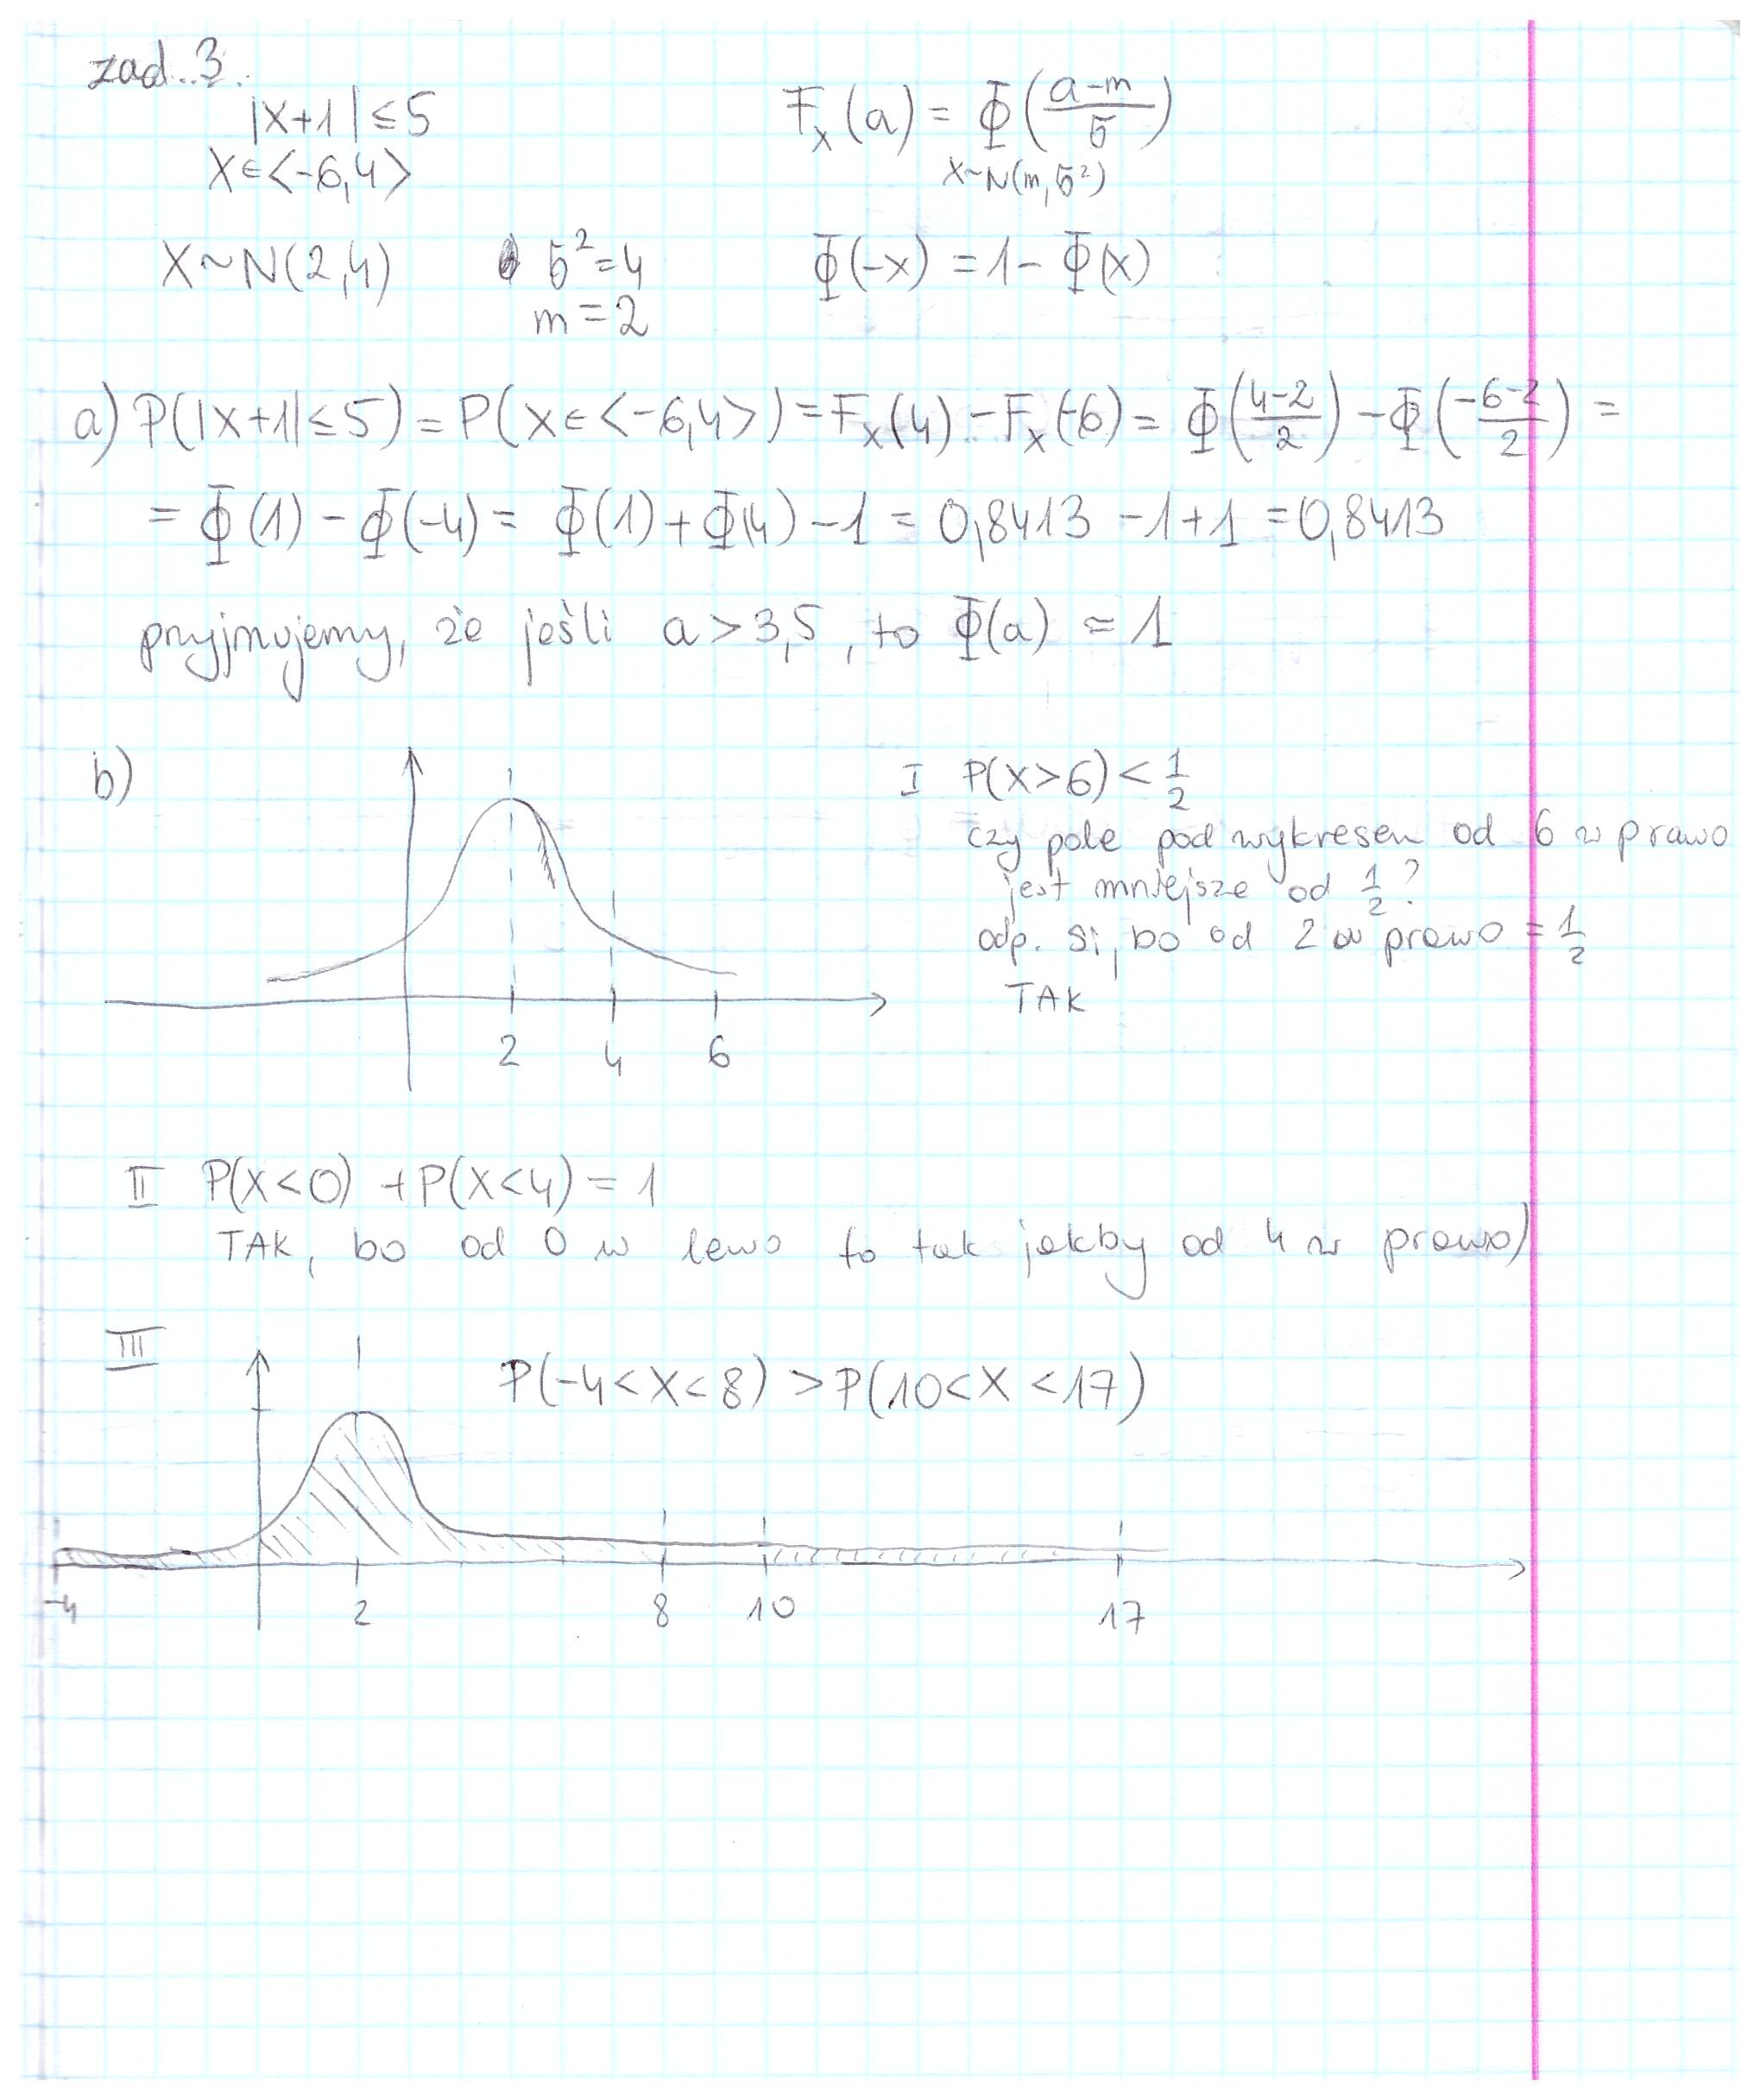 zad. 3.
|X+1| ≤ 5
X∈<-6,4>
F_X(a) = Φ((a-m)/σ)
X~N(m,σ²)
X~N(2,4) σ²=4 Φ(-x) = 1- Φ(x)
m=2
a) P(|X+1| ≤ 5) = P(X∈<-6,4>) = F_X(4) - F_X(-6) = Φ((4-2)/2) - Φ((-6-2)/2) =
= Φ(1) - Φ(-4) = Φ(1) + Φ(4) - 1 = 0,8413 -1+1 = 0,8413
przyjmujemy, że jeśli a > 3,5, to Φ(a) = 1
b)
2 4 6
I P(X>6) < 1/2
czy pole pod wykresem od 6 w prawo
jest mniejsze od 1/2?
odp. Si, bo od 2 w prawo = 1/2
TAK
II P(X<0) + P(X<4) = 1
TAK, bo od 0 w lewo to tak jakby od 4 w prawo)
III
P(-4<X<8) > P(10<X<17)
-4 2 8 10 17